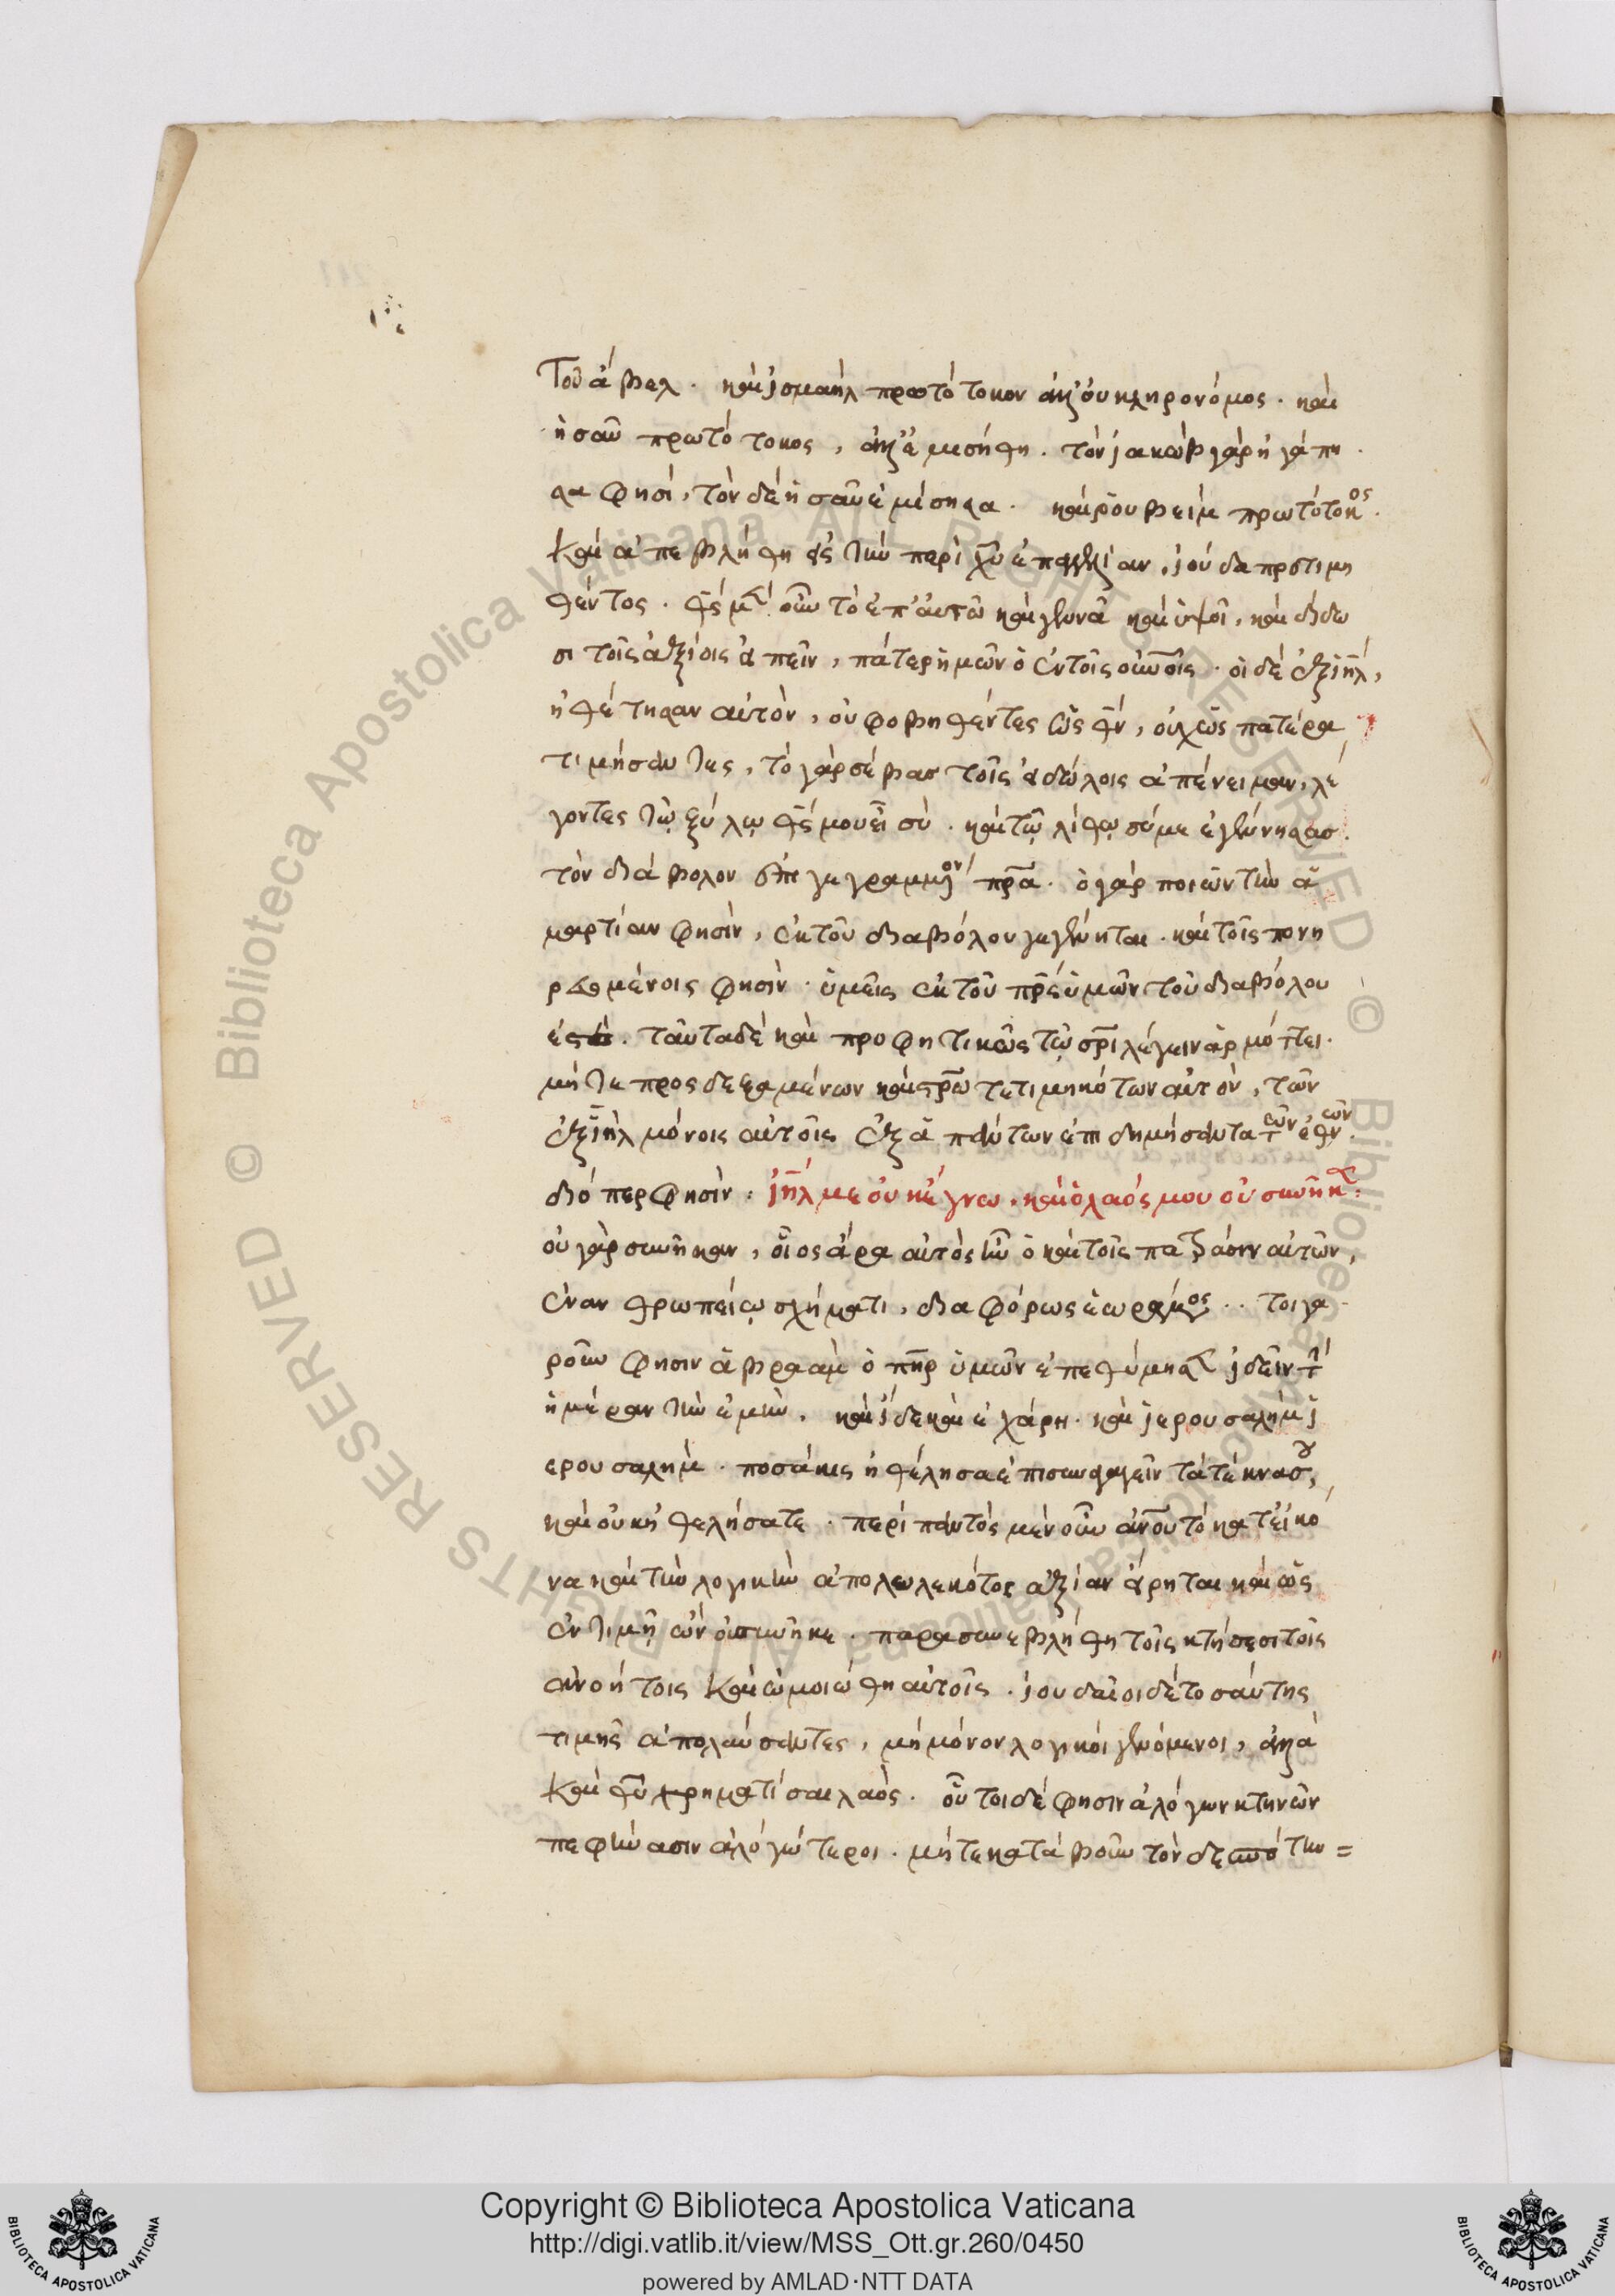 Τοῦ ἄβελ. καὶ ἰσμαὴλ πρωτότοκον ἀλλ' οὐ κληρονόμος. καὶ
ἠσαῦ πρωτότοκος, ἀλλ' ἐμισήθη. τὸν ἰακὼβ γὰρ ἠγάπη
σα φησί, τὸν δὲ ἠσαῦ ἐμίσησα. καὶ ῥουβεὶμ πρωτότοκος.
καὶ ἀπεβλήθη εἰς τὴν περὶ χῦ ἐπαγγελίαν, ἰούδα προτιμη
θέντος. οὖν τὸ ἐπ' αὐτῶ καὶ γεννᾶ καὶ ὑψοῖ, καὶ δίδω
σι τοῖς ἀξίοις εἰπεῖν, πάτερ ἡμῶν ὁ ἐν τοῖς οὐνοῖς. οἱ δὲ ἐξ ιηλ,
ἠθέτησαν αὐτὸν, οὐ φοβηθέντες ὡς θν, οὐχ ὡς πατέρα
τιμήσαντες, τὸ γὰρ σέβας τοῖς εἰδώλοις ἀπένειμαν, λέ
γοντες τῷ ξύλῳ θς μου εἶ σύ. καὶ τῷ λίθῳ σύ με ἐγέννησας.
τὸν διάβολον ἐπιγεγραμμένον πρα. ὁ γὰρ ποιῶν τὴν ἁ
μαρτίαν φησὶν, ἐκ τοῦ διαβόλου γεγέννηται. καὶ τοῖς πονη
ρευομένοις φησὶν. ὑμεῖς ἐκ τοῦ πρς ὑμῶν τοῦ διαβόλου
ἐστέ. ταῦτα δὲ καὶ προφητικῶς τῷ σρι λέγειν ἁρμόττει.
μήτε προσδεξαμένων τετιμηκότων αὐτὸν, τῶν
ἐξ ιηλ μόνοις αὐτοῖς ἐξ ἁπάντων ἐπιδημήσαντα τῶν ἐθνῶν.
διόπερ φησὶν: ιηλ με οὐκ ἔγνω. καὶ ὁ λαός μου οὐ συνῆκε:
οὐ γὰρ συνῆκαν, οἷος ἄρα αὐτὸς ἦν ὁ καὶ τοῖς πατράσιν αὐτῶν,
ἐν ἀνθρωπείῳ σχήματι, διαφόρως ἑωραμένος.. τοιγα
ροῦν φησιν ἀβραὰμ ὁ πηρ ὑμῶν ἐπεθύμησε ἰδεῖν τὴν
ἡμέραν τὴν ἐμὴν. καὶ ἴδε καὶ ἐχάρη. καὶ ἱερουσαλὴμ ἱ
ερουσαλὴμ. ποσάκις ἠθέλησα ἐπισυναγαγεῖν τὰ τέκνα σου,
καὶ οὐκ ἠθελήσατε. περὶ παντὸς μὲν οὖν ἀνου τὸ κατ' εἰκό
να καὶ τὴν λογικὴν ἀπολωλεκότος ἀξίαν εἴρηται καὶ ὡς
ἐν τιμῇ ὢν οὐ συνῆκε. παρασυνεβλήθη τοῖς κτήνεσι τοῖς
ἀνοήτοις καὶ ὡμοιώθη αὐτοῖς. ἰουδαῖοι δὲ τοσαύτης
τιμῆς ἀπολαύσαντες, μὴ μόνον λογικοὶ γενόμενοι, ἀλλὰ
καὶ θῦ χρηματίσαι λαὸς. οὗτοι δέ φησιν ἀλόγων κτηνῶν
πεφήνασιν ἀλογώτεροι. μήτε κατὰ βοῦν τὸν δεσπότην =
Copyright © Biblioteca Apostolica Vaticana
http://digi.vatlib.it/view/MSS_Ott.gr.260/0450
powered by AMLAD·NTT DATA